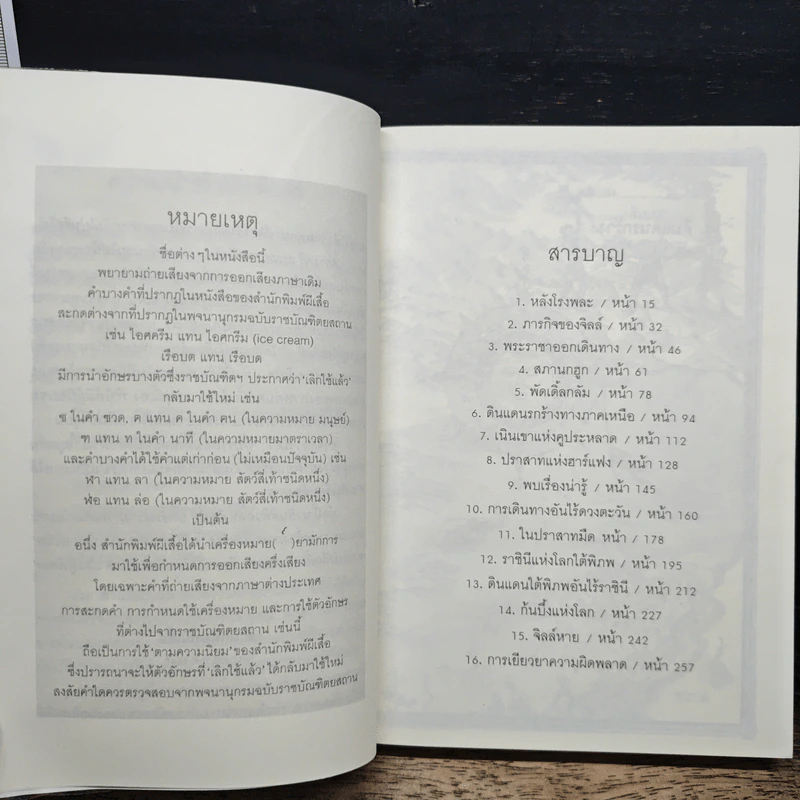 หมายเหตุ
ชื่อต่าง ๆในหนังสือนี้
พยายามถ่ายเสียงจากการออกเสียงภาษาเดิม
คำบางคำที่ปรากฏในหนังสือของสำนักพิมพ์ผีเสื้อ
สะกดต่างจากที่ปรากฏในพจนานุกรมฉบับราชบัณฑิตยสถาน
เช่น ไอศครีม แทน ไอศกรีม (ice cream)
เรือบต แทน เรือบด
มีการนำอักษรบางตัวซึ่งราชบัณฑิตฯ ประกาศว่า'เลิกใช้แล้ว'
กลับมาใช้ใหม่ เช่น
ฃ ในคำ ฃวด, ฅ แทน ค ในคำ ฅน (ในความหมาย มนุษย์)
ฑ แทน ท ในคำ นาที (ในความหมายมาตราเวลา)
และคำบางคำได้ใช้คำแต่เก่าก่อน (ไม่เหมือนปัจจุบัน) เช่น
ฬา แทน ลา (ในความหมาย สัตว์สี่เท้าชนิดหนึ่ง)
ฬ่อ แทน ล่อ (ในความหมาย สัตว์สี่เท้าชนิดหนึ่ง)
เป็นต้น
อนึ่ง สำนักพิมพ์ผีเสื้อได้นำเครื่องหมาย( ๎ )ยามักการ
มาใช้เพื่อกำหนดการออกเสียงครึ่งเสียง
โดยเฉพาะคำที่ถ่ายเสียงจากภาษาต่างประเทศ
การสะกดคำ การกำหนดใช้เครื่องหมาย และการใช้ตัวอักษร
ที่ต่างไปจากราชบัณฑิตยสถาน เช่นนี้
ถือเป็นการใช้ 'ตามความนิยม' ของสำนักพิมพ์ผีเสื้อ
ซึ่งปรารถนาจะให้ตัวอักษรที่ 'เลิกใช้แล้ว' ได้กลับมาใช้ใหม่
สงสัยคำใดควรตรวจสอบจากพจนานุกรมฉบับราชบัณฑิตยสถาน
สารบาญ
1. หลังโรงพละ / หน้า 15
2. ภารกิจของจิลล์ / หน้า 32
3. พระราชาออกเดินทาง / หน้า 46
4. สภานกฮูก / หน้า 61
5. พัดเดิ้ลกลัม / หน้า 78
6. ดินแดนรกร้างทางภาคเหนือ / หน้า 94
7. เนินเขาแห่งคูประหลาด / หน้า 112
8. ปราสาทแห่งฮาร์แฟง / หน้า 128
9. พบเรื่องน่ารู้ / หน้า 145
10. การเดินทางอันไร้ดวงตะวัน / หน้า 160
11. ในปราสาทมืด หน้า / 178
12. ราชินีแห่งโลกใต้พิภพ / หน้า 195
13. ดินแดนใต้พิภพอันไร้ราชินี / หน้า 212
14. ก้นบึ้งแห่งโลก / หน้า 227
15. จิลล์หาย / หน้า 242
16. การเยียวยาความผิดพลาด / หน้า 257